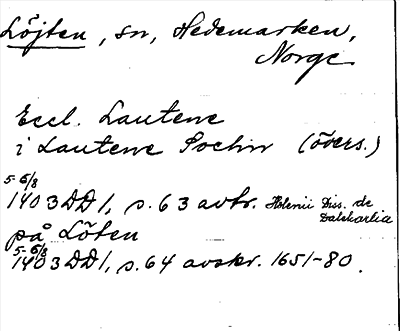 Löjten, sn, Hedemarken,
Norge
Eccl. Lautene
i Lautene Sochn (övers.)
5-6/8
1403 DD 1, s. 63 avtr. Holenii Diss. de
Dalekarlia
på Löten
5-6/8
1403 DD 1, s. 64 avskr. 1651-80.